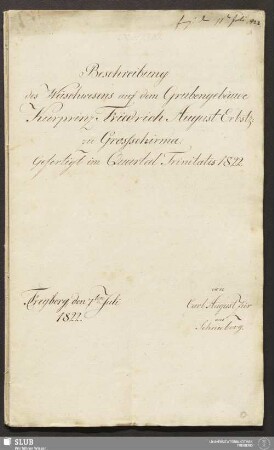 Beschreibung
des Wäschwesens auf dem Grubengebäude
Kurprinz Friedrich August Erbst.
zu Grosschirma
Gefertigt im Quartal Trinitatis 1822.
Freyberg den 7ten Juli
1822.
von
Carl August
aus
Schneeberg.
SLUB